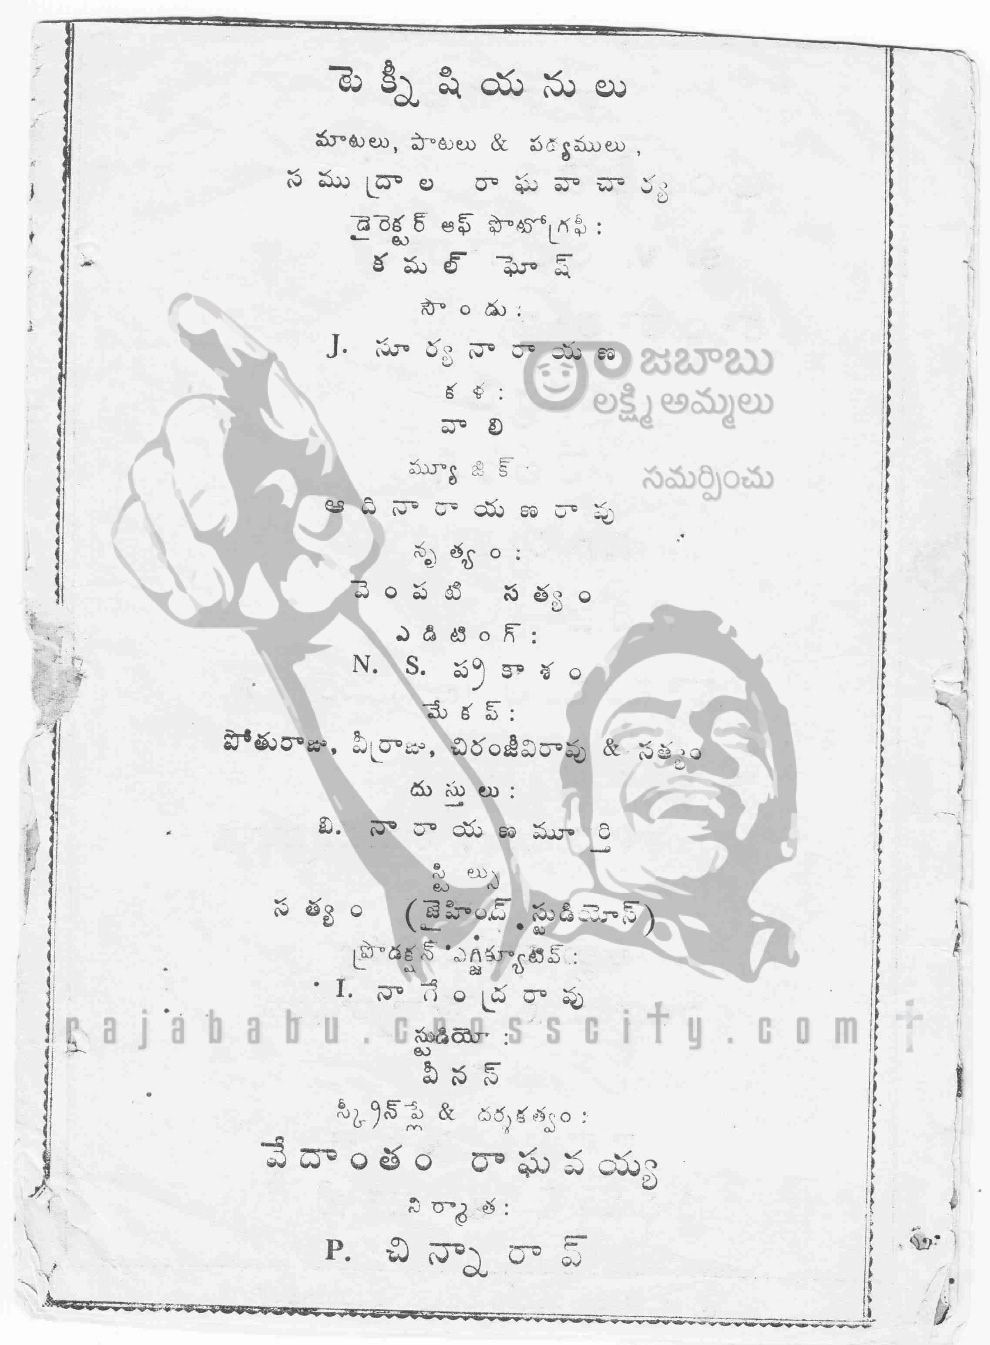 టెక్నీషియనులు
మాటలు, పాటలు & పద్యములు,
సముద్రాల రాఘవాచార్య
డైరెక్టర్ ఆఫ్ ఫొటోగ్రఫీ :
కమల్ ఘోష్
సౌండు :
J. సూర్యనారాయణ
రాజబాబు
లక్ష్మి అమ్మలు
కళ :
వాలి
మ్యూజిక్
సమర్పించు
ఆదినారాయణరావు
నృత్యం :
వెంపటి సత్యం
ఎడిటింగ్ :
N. S. ప్రకాశం
మేకప్ :
పోతురాజు, వీర్రాజు, చిరంజీవిరావు & సత్యం
దుస్తులు :
బి. నారాయణమూర్తి
స్టిల్సు
సత్యం (జైహింద్ స్టుడియోస్)
ప్రొడక్షన్ ఎగ్జిక్యూటివ్ :
I. నాగేంద్రరావు
rajababu.crosscity.com
స్టుడియో :
వీనస్
స్క్రీన్‌ప్లే & దర్శకత్వం :
వేదాంతం రాఘవయ్య
నిర్మాత :
P. చిన్నారావ్